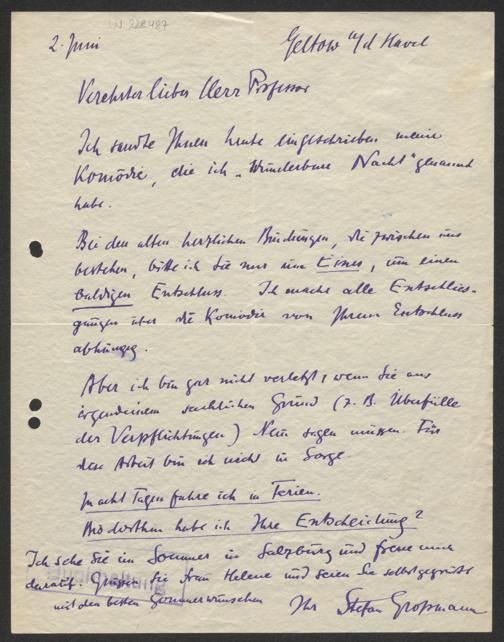 J.N. 228487
2. Juni Geltow a/d Havel
Verehrter lieber Herr Professor
Ich sandte Ihnen heute eingeschrieben meine
Komödie, die ich „Wunderbare Nacht" genannt
habe.
Bei den alten herzlichen Bindungen, die zwischen uns
bestehen, bitte ich Sie nur um Eines, um einen
baldigen Entschluss. Ich mache alle Entschlies-
sungen über die Komödie von Ihrem Entschluss
abhängig.
Aber ich bin gar nicht verletzt, wenn Sie aus
irgendeinem sachlichen Grund (z. B. Überfülle
der Verpflichtungen) Nein sagen müssen. Für
diese Arbeit bin ich nicht in Sorge
In acht Tagen fahre ich in Ferien.
Bis dorthin habe ich Ihre Entscheidung?
Ich sehe Sie im Sommer in Salzburg und freue mich
darauf. Grüssen Sie Frau Helene und seien Sie selbst gegrüsst
mit den besten Sommerwünschen
Ihr Stefan Großmann